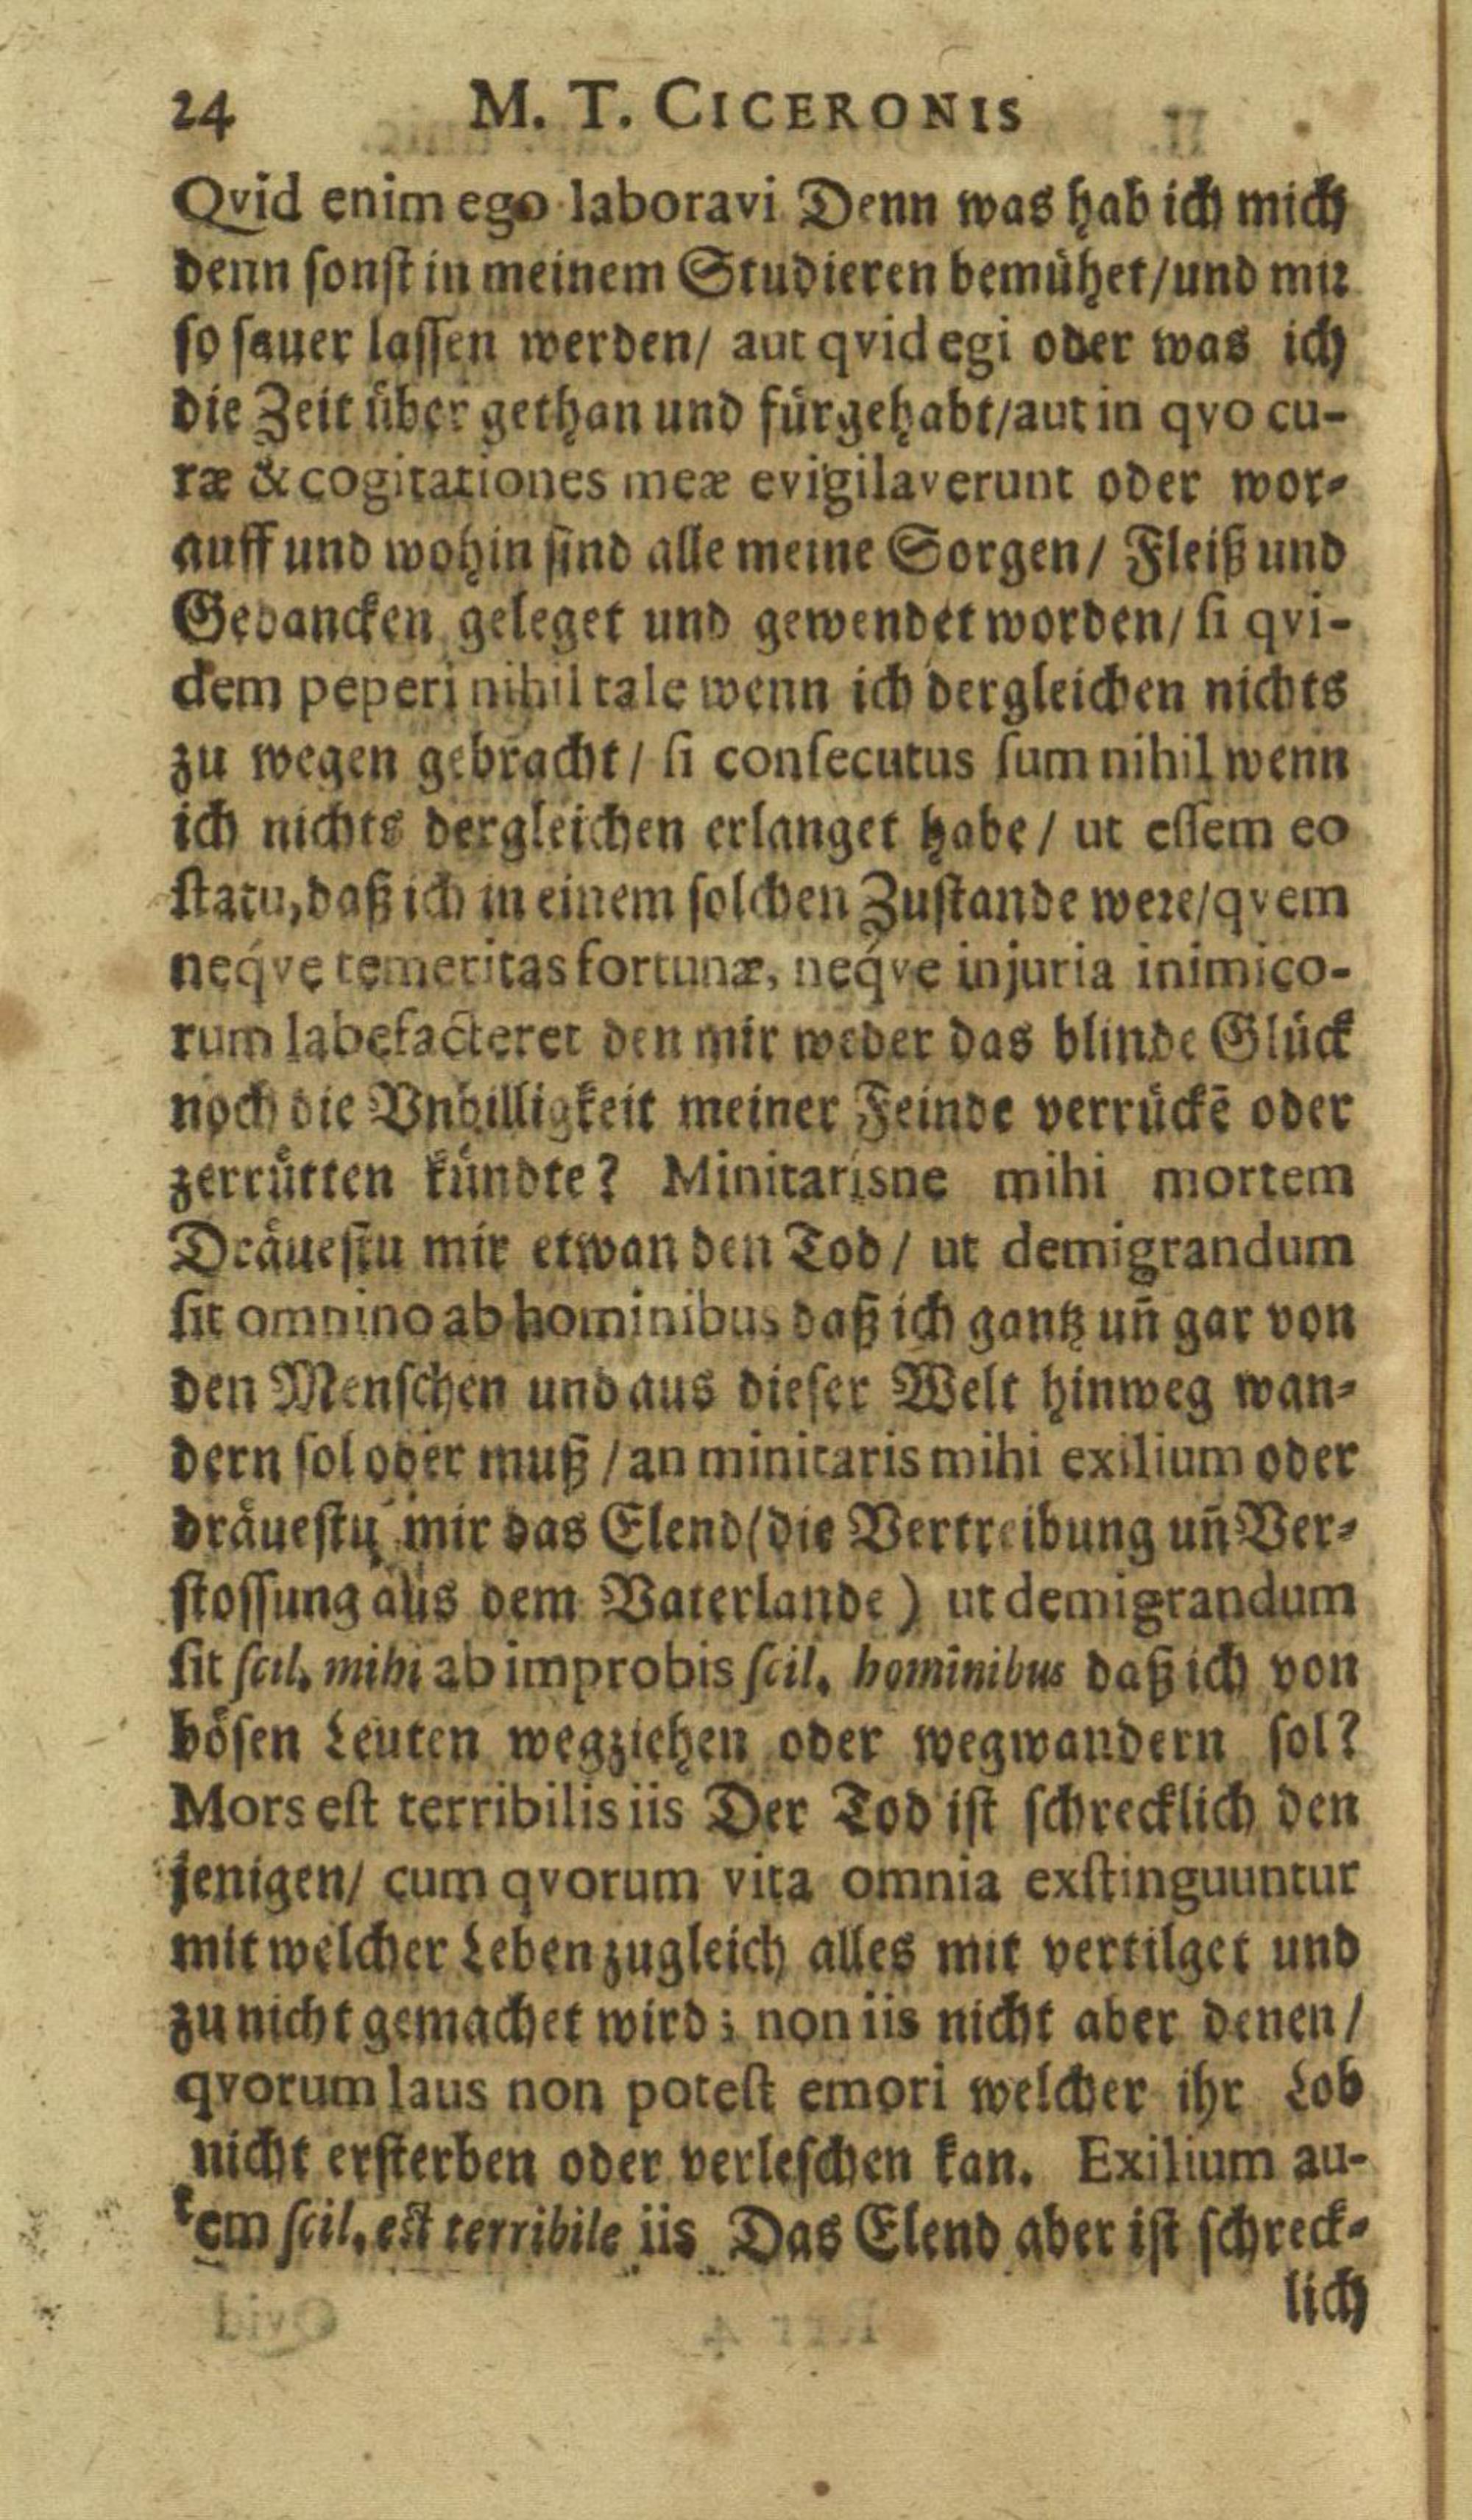 24 M. T. CICERONIS
Qvid enim ego laboravi Denn was hab ich mich
denn ſonſt in meinem Studieren bemühet/und mir
ſo ſauer laſſen werden/ aut qvid egi oder was ich
die Zeit über gethan und fürgehabt/aut in qvo cu-
ræ & cogitationes meæ evigilaverunt oder wor-
auff und wohin ſind alle meine Sorgen/ Fleiß und
Gedancken geleget und gewendet worden/ ſi qvi-
dem peperi nihil tale wenn ich dergleichen nichts
zu wegen gebracht/ ſi conſecutus ſum nihil wenn
ich nichts dergleichen erlanget habe/ ut eſſem eo
ſtatu, daß ich in einem ſolchen Zuſtande were/qvem
neq́ve temeritas fortunæ, neq́ve injuria inimico-
rum labefacteret den mir weder das blinde Glück
noch die Vnbilligkeit meiner Feinde verrückē oder
zerrütten kündte? Minitarisne mihi mortem
Dräueſtu mir etwan den Tod/ ut demigrandum
ſit omnino ab hominibus daß ich gantz uñ gar von
den Menſchen und aus dieſer Welt hinweg wan-
dern ſol oder muß/ an minitaris mihi exilium oder
dräueſtu mir das Elend (die Vertreibung uñ Ver-
ſtoſſung aus dem Vaterlande) ut demigrandum
ſit ſcil. mihi ab improbis ſcil. hominibus daß ich von
böſen Leuten wegziehen oder wegwandern ſol?
Mors eſt terribilis iis Der Tod iſt ſchrecklich den
jenigen/ cum qvorum vita omnia exſtinguuntur
mit welcher Leben zugleich alles mit vertilget und
zu nicht gemachet wird; non iis nicht aber denen/
qvorum laus non poteſt emori welcher ihr Lob
nicht erſterben oder verleſchen kan. Exilium au-
tem ſcil. eſt terribile iis Das Elend aber iſt ſchreck-
lich